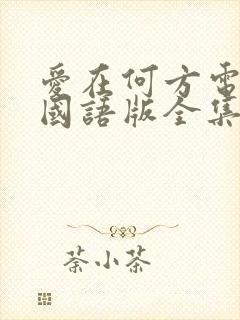 愛在何方電
國語版全集
荼小茶